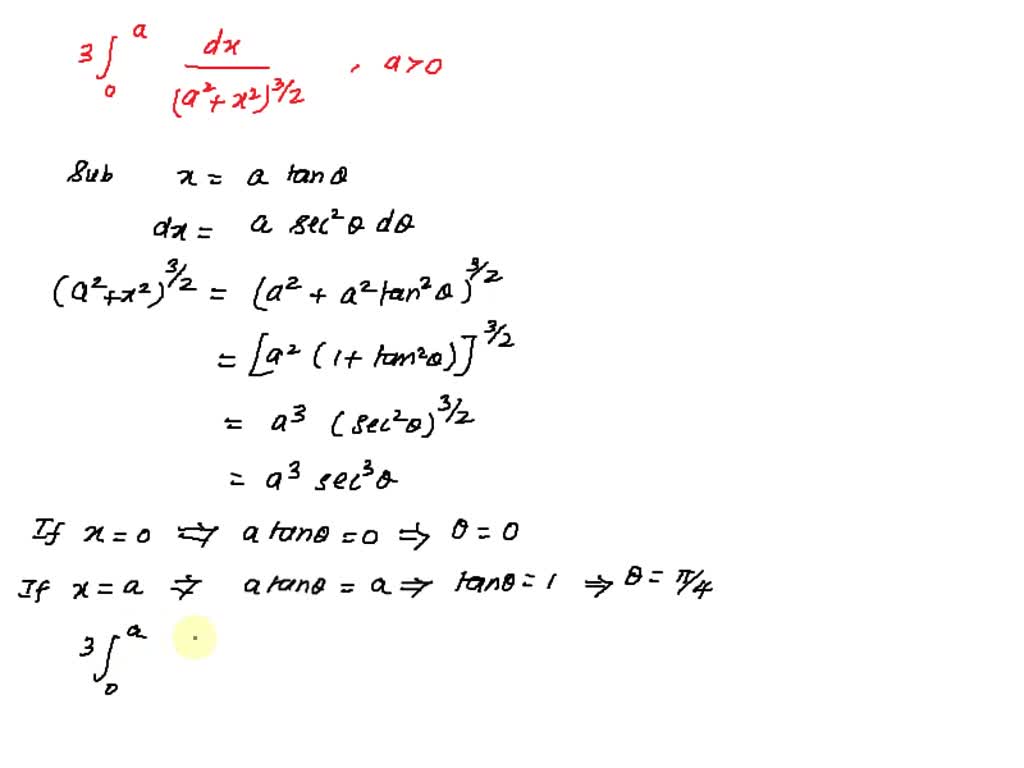 3∫₀ᵃ dx/(a²+x²)^3/2 , a>0
Sub x = a tanθ
dx = a sec²θ dθ
(a²+x²)^3/2 = (a² + a²tan²θ)^3/2
= [a² (1+ tan²θ)]^3/2
= a³ (sec²θ)^3/2
= a³ sec³θ
If x=0 ⇒ a tanθ =0 ⇒ θ=0
If x=a ⇒ a tanθ = a ⇒ tanθ=1 ⇒ θ=π/4
3∫₀ᵃ